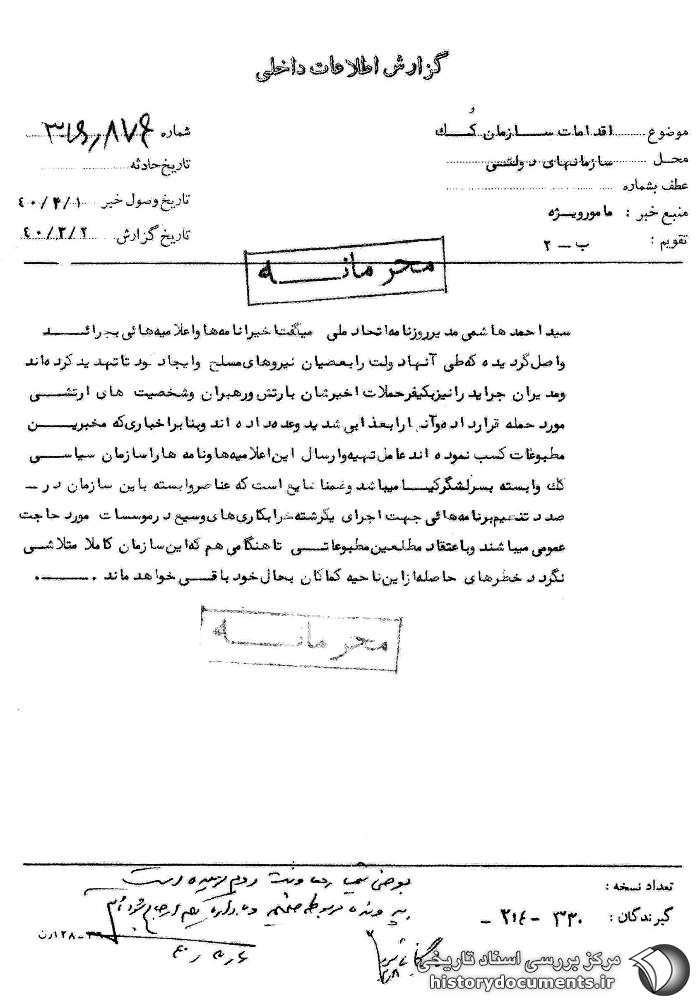 گزارش اطلاعات داخلی
موضوع اقدامات سازمان کُک
محل سازمانهای دولتی
عطف بشماره
منبع خبر : مامورویژه
تقویم : ب – ۲
شماره
تاریخ حادثه
تاریخ وصول خبر ۴۰/۳/۱
تاریخ گزارش ۴۰/۳/۲
محرمانه
سید احمد هاشمی مدیر روزنامه اتحاد ملی میگفت اخیرا نامه ها و اعلامیه هائی بجرائد
واصل گردیده که طی آنها دولت را بعصیان نیروهای مسلح و ایجاد کودتا تهدید کرده اند
و مدیران جراید را نیز بکیفر حملات اخیرشان بارتش و رهبران و شخصیت های ارتشی
مورد حمله قرار داده و آنها را بعذابی شدید وعده داده اند و بنابر اخباری که مخبرین
مطبوعات کسب نموده اند عامل تهیه و ارسال این اعلامیه ها و نامه ها را سازمان سیاسی
کک وابسته بسرلشگر کیا میباشد و ضمنا شایع است که عناصر وابسته باین سازمان در –
صدد تنظیم برنامه هائی جهت اجرای یکرشته خرابکاری های وسیع در موسسات مورد حاجت
عمومی میباشند و باعتقاد مطلعین مطبوعاتی تا هنگامی هم که این سازمان کاملا متلاشی
نگردد خطرهای حاصله از این ناحیه کماکان بحال خود باقی خواهد ماند .
محرمانه
تعداد نسخه :
گیرندگان : ۳۳۰ – ۲۱۴ –
بعرض تیمسار معاونت دوم رسیده است
مرکز بررسی اسناد تاریخی
historydocuments.ir